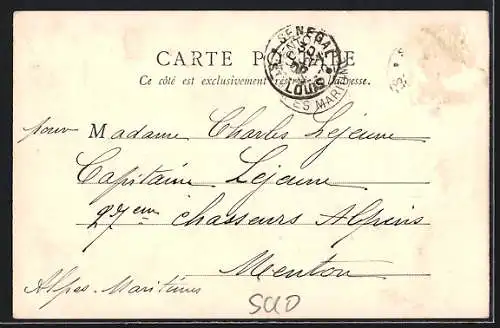 CARTE POSTALE
Ce côté est exclusivement réservé à l'adresse.
SENEGAL
LOUIS
ES MARITIM
pour Madame Charles Lejeune
Capitaine Lejeune
27eme chasseurs Alpins
Menton
Alpes-Maritimes
SUD